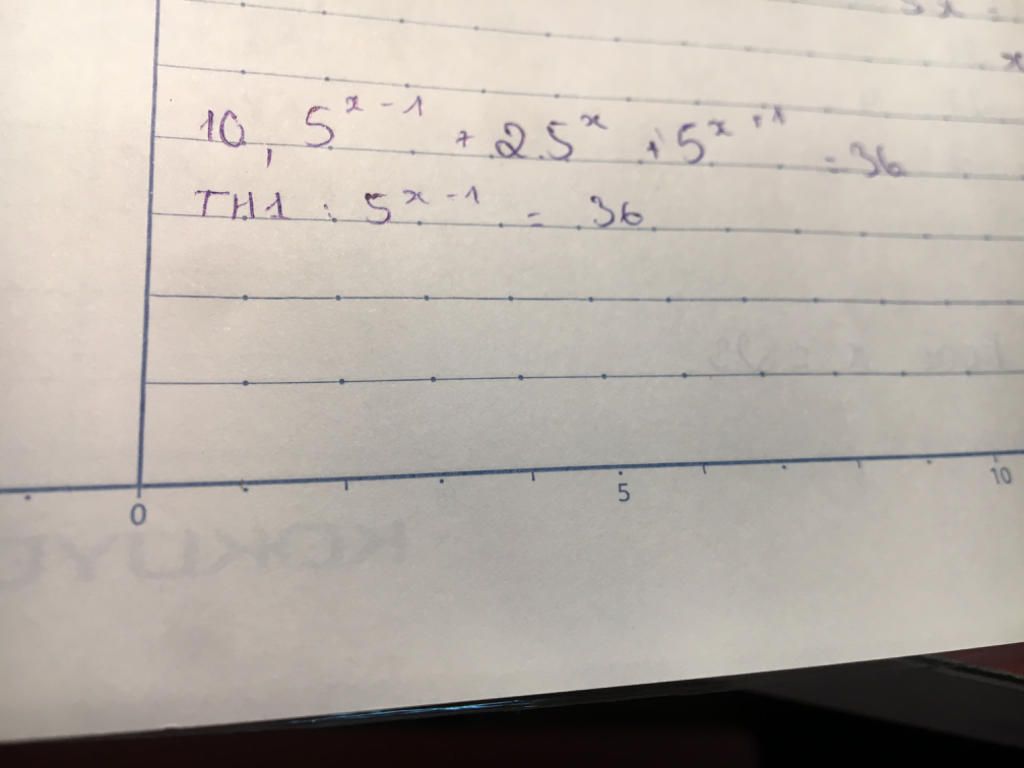 x
10, 5^{x-1} + 2.5^x + 5^{x+1} = 36
TH1 : 5^{x-1} = 36
0 5 10